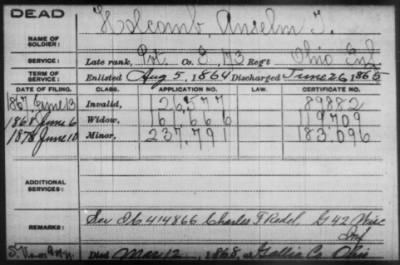 DEAD
NAME OF SOLDIER: Holcomb, Anselm T.
SERVICE: Late rank, Pvt. Co. E, 173 Regt Ohio Inf
TERM OF SERVICE: Enlisted Aug 5, 1864 Discharged June 26, 1865
DATE OF FILING. CLASS. APPLICATION NO. LAW. CERTIFICATE NO.
1867 June 13 Invalid, 126,577 89882
1868 June 6 Widow, 161,666 119709
1878 June 10 Minor, 237,791 183,096
ADDITIONAL SERVICES:
REMARKS: See Ob 414866 Charles F G 42 Wisc
Inf
Died Mar 12, 1868, at Gallia Co Ohio